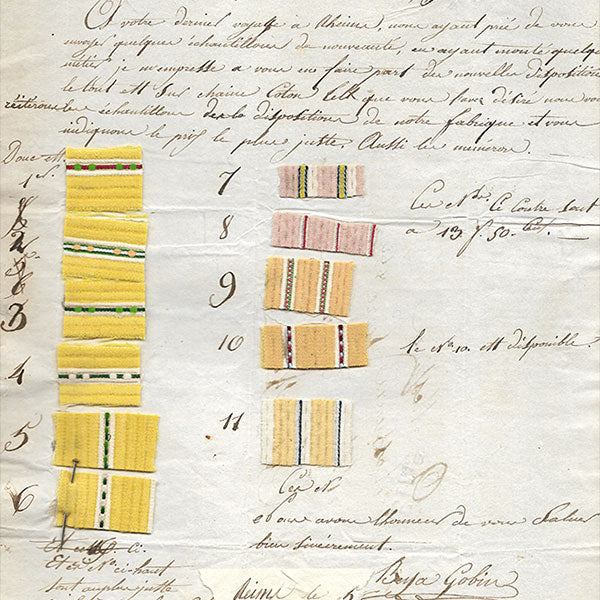 A votre dernier voyage a Rheims, nous ayant prié de vous
envoyer quelques échantillons de nouveauté, en ayant monté quelques
métiers je m'empresse a vous en faire part des nouvelles dispositions
le tout est sur chaine Coton telle que vous l'avez désiré nous vous
réiterons les échantillons de la disposition de notre fabrique et vous
indiquons le prix le plus juste. Aussi les numéros.
1
2
3
4
5
6
7
8
9
10
11
Ces Nos. Ci Contre sont
a 13 f 50
le No. 10. est disponible.
Ces Nos
avons l'honneur de vous Saluer
bien sincèrement.
Et ces Nos ci-haut
sont au plus juste
Reims le
Gobin